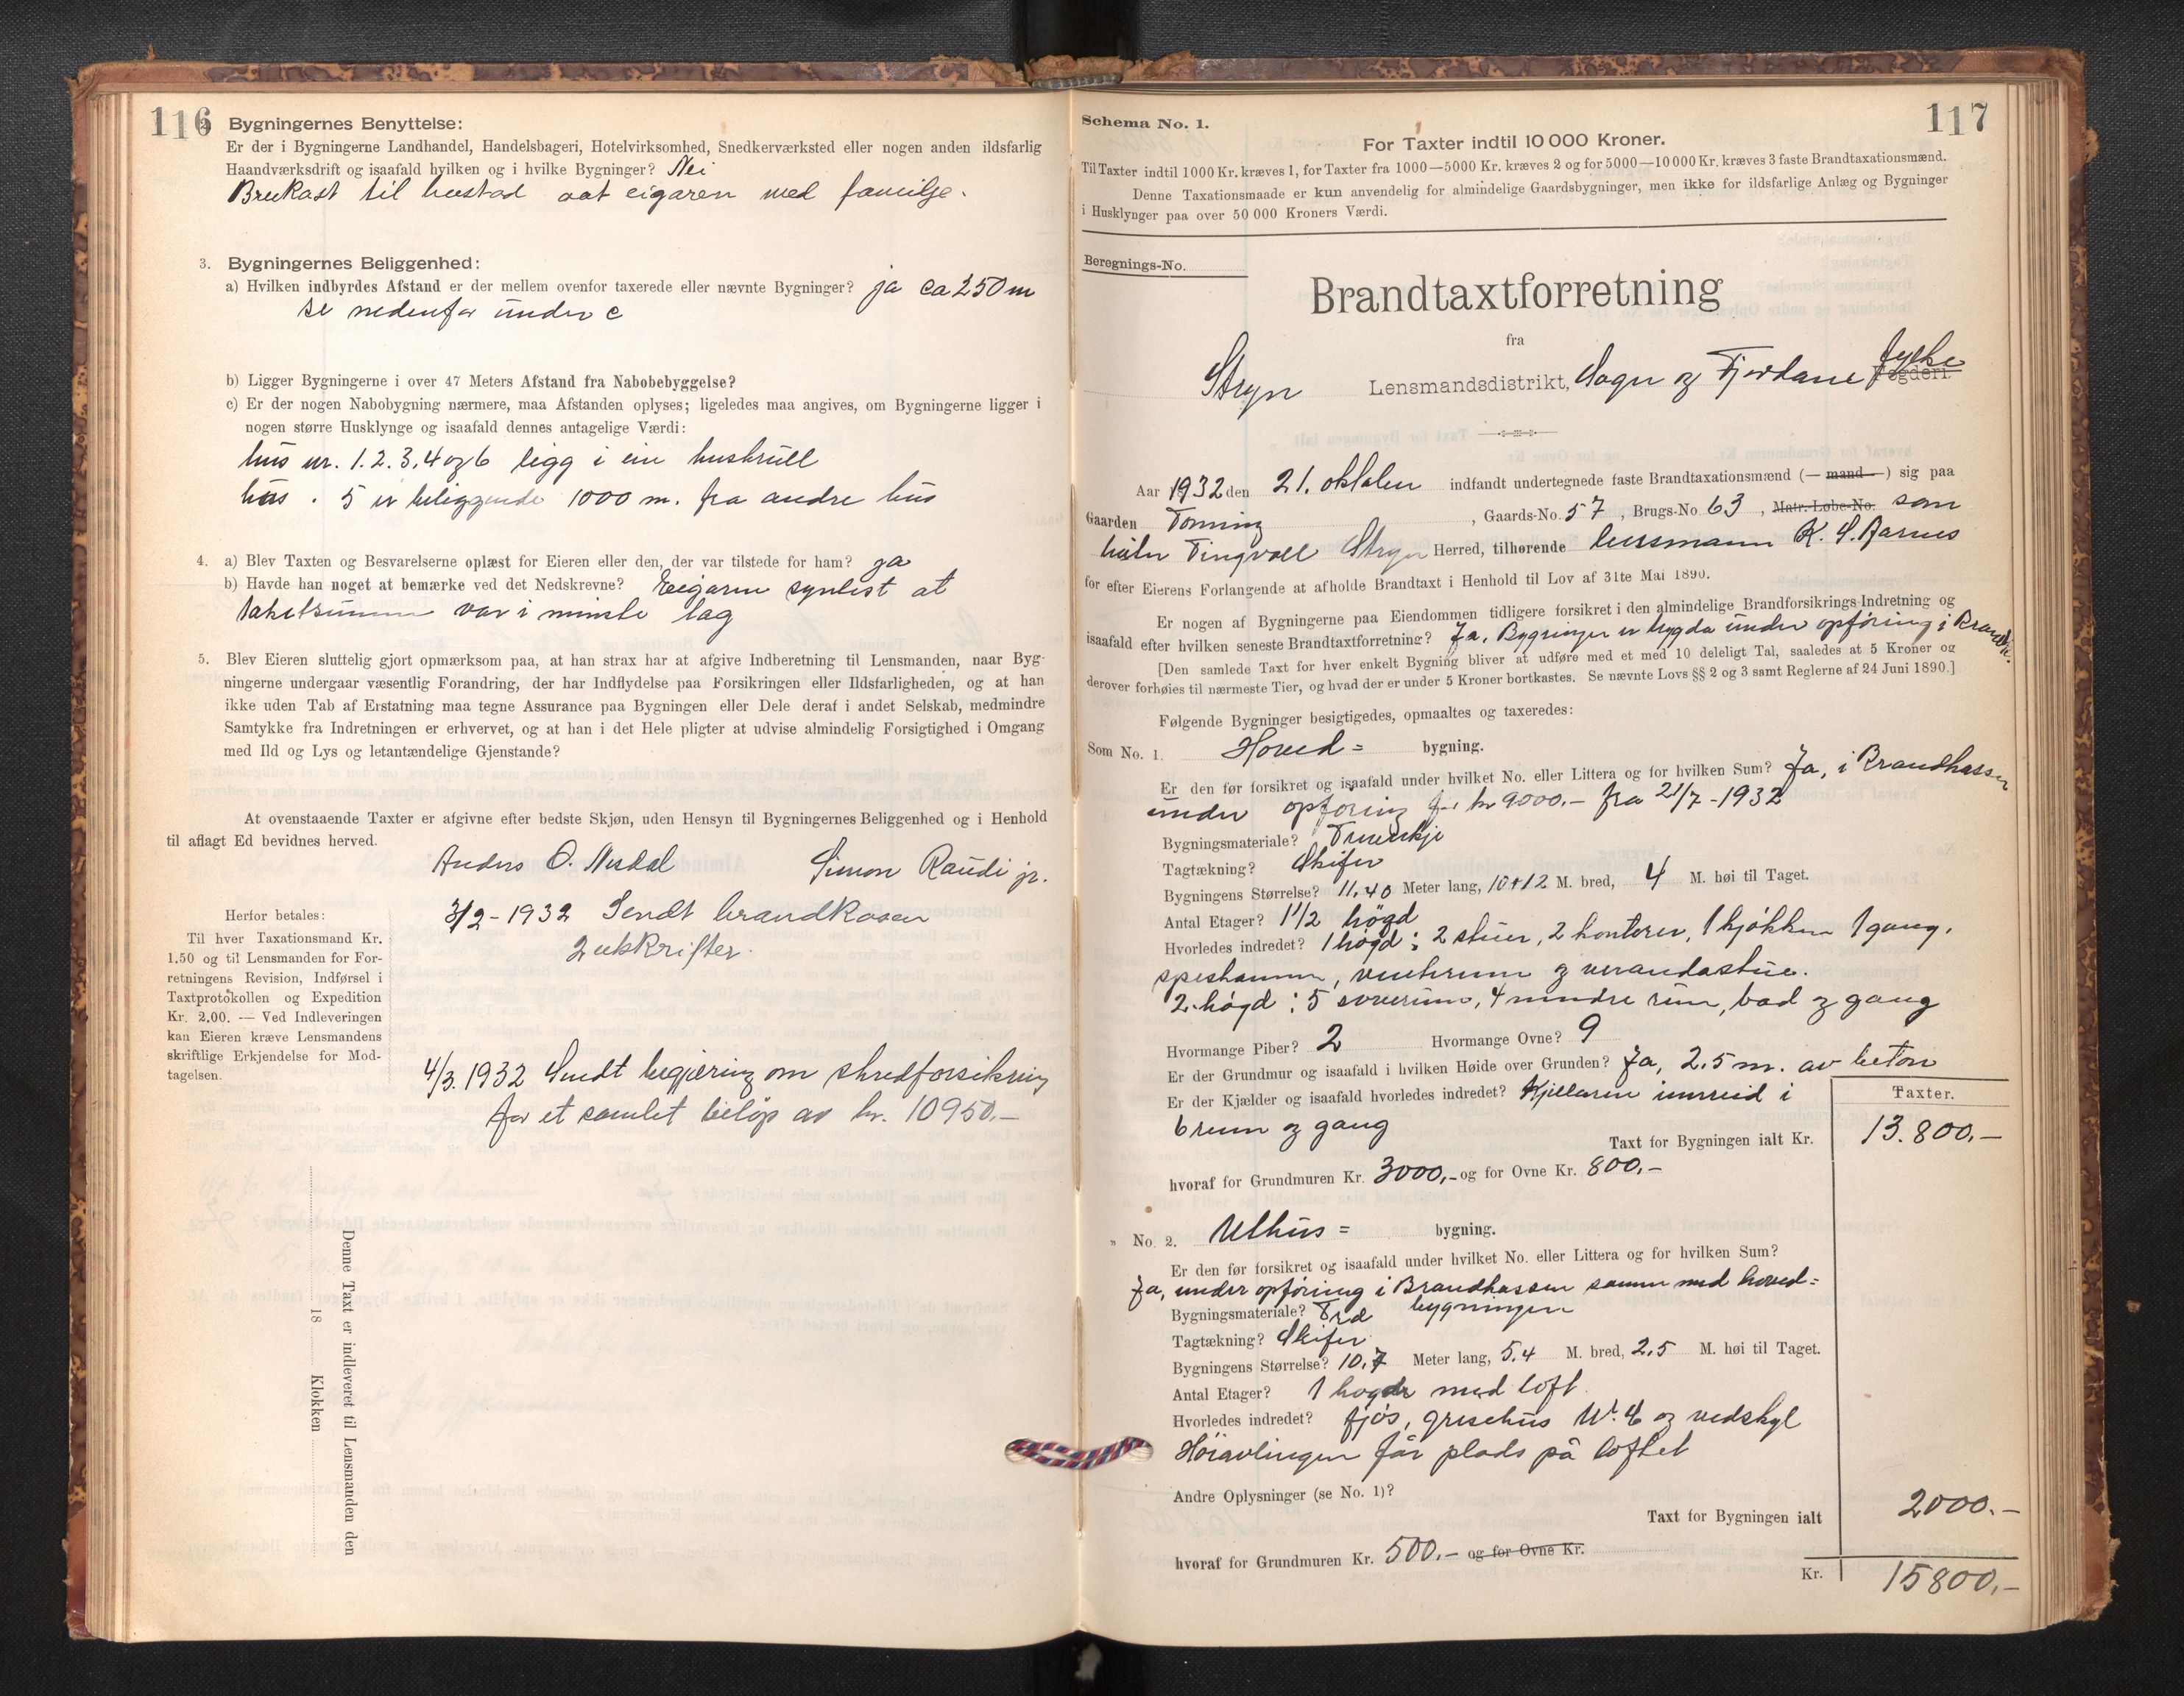 116
2. Bygningernes Benyttelse:
Er der i Bygningerne Landhandel, Handelsbageri, Hotelvirksomhed, Snedkerværksted eller nogen anden ildsfarlig
Haandværksdrift og isaafald hvilken og i hvilke Bygninger? Nei
Brukast til bustad aat eigaren med familje.
3. Bygningernes Beliggenhed:
a) Hvilken indbyrdes Afstand er der mellem ovenfor taxerede eller nævnte Bygninger? ja ca 250 m
se nedenfor under c
b) Ligger Bygningerne i over 47 Meters Afstand fra Nabobebyggelse?
c) Er der nogen Nabobygning nærmere, maa Afstanden oplyses; ligeledes maa angives, om Bygningerne ligger i
nogen større Husklynge og isaafald dennes antagelige Værdi:
hus nr. 1. 2. 3, 4 og 6 ligg i ein huskrull
hus . 5 er beliggende 1000 m. fra andre hus
4. a) Blev Taxten og Besvarelserne oplæst for Eieren eller den, der var tilstede for ham? ja
b) Havde han noget at bemærke ved det Nedskrevne? Eigaren syntest at
takstsummen var i minste lag
5. Blev Eieren sluttelig gjort opmærksom paa, at han strax har at afgive Indberetning til Lensmanden, naar Byg-
ningerne undergaar væsentlig Forandring, der har Indflydelse paa Forsikringen eller Ildsfarligheden, og at han
ikke uden Tab af Erstatning maa tegne Assurance paa Bygningen eller Dele deraf i andet Selskab, medmindre
Samtykke fra Indretningen er erhvervet, og at han i det Hele pligter at udvise almindelig Forsigtighed i Omgang
med Ild og Lys og letantændelige Gjenstande?
At ovenstaaende Taxter er afgivne efter bedste Skjøn, uden Hensyn til Bygningernes Beliggenhed og i Henhold
til aflagt Ed bevidnes herved.
Anders O. Nesdal Simon Raudi jr.
3/2 - 1932 Sendt brandkassen
2 utskrifter.
Herfor betales:
Til hver Taxationsmand Kr.
1.50 og til Lensmanden for For-
retningens Revision, Indførsel i
Taxtprotokollen og Expedition
Kr. 2.00. — Ved Indleveringen
kan Eieren kræve Lensmandens
skriftlige Erkjendelse for Mod-
tagelsen.
4/3. 1932 Sendt begjæring om skredforsikring
for et samlet beløp av kr. 10950.—
Denne Taxt er indleveret til Lensmanden den
18 Klokken
117
Schema No. 1.
For Taxter indtil 10 000 Kroner.
Til Taxter indtil 1000 Kr. kræves 1, for Taxter fra 1000—5000 Kr. kræves 2 og for 5000—10 000 Kr. kræves 3 faste Brandtaxationsmænd.
Denne Taxationsmaade er kun anvendelig for almindelige Gaardsbygninger, men ikke for ildsfarlige Anlæg og Bygninger
i Husklynger paa over 50 000 Kroners Værdi.
Beregnings-No.
Brandtaxtforretning
fra
Stryn Lensmandsdistrikt, Sogn og Fjordane fylke Fogderi.
Aar 1932 den 21. oktober indfandt undertegnede faste Brandtaxationsmænd (— mand —) sig paa
Gaarden Tonning, Gaards-No. 57, Brugs-No. 63, Matr.-Løbe-No. som
heiter Tingvoll Stryn Herred, tilhørende lensmann K. S. Aarnes
for efter Eierens Forlangende at afholde Brandtaxt i Henhold til Lov af 31te Mai 1890.
Er nogen af Bygningerne paa Eiendommen tidligere forsikret i den almindelige Brandforsikrings-Indretning og
isaafald efter hvilken seneste Brandtaxtforretning? Ja. Bygninger er trygda under opføring i Brandk.
[Den samlede Taxt for hver enkelt Bygning bliver at udføre med et med 10 deleligt Tal, saaledes at 5 Kroner og
derover forhøies til nærmeste Tier, og hvad der er under 5 Kroner bortkastes. Se nævnte Lovs §§ 2 og 3 samt Reglerne af 24 Juni 1890.]
Følgende Bygninger besigtigedes, opmaaltes og taxeredes:
Som No. 1. Hoved= bygning.
Er den før forsikret og isaafald under hvilket No. eller Littera og for hvilken Sum? Ja, i Brandkassen
under opføring for kr 9000.— fra 21/7 - 1932
Bygningsmateriale? Treverkje
Tagtækning? Skifer
Bygningens Størrelse? 11,40 Meter lang, 10+12 M. bred, 4 M. høi til Taget.
Antal Etager? 1 1/2 høgd
Hvorledes indredet? 1 høgd: 2 stuer, 2 kontorer, 1 kjøkken 1 gang,
speskammer, venterum og verandastue.
2. høgd: 5 soverum, 4 mindre rum, bad og gang
Hvormange Piber? 2 Hvormange Ovne? 9
Er der Grundmur og isaafald i hvilken Høide over Grunden? Ja, 2,5 m. av beton
Er der Kjælder og isaafald hvorledes indredet? Kjellaren innreid i
6 rum og gang
Taxter.
Taxt for Bygningen ialt Kr. 13.800,—
hvoraf for Grundmuren Kr. 3000,— og for Ovne Kr. 800,—
„ No. 2. Uthus= bygning.
Er den før forsikret og isaafald under hvilket No. eller Littera og for hvilken Sum?
Ja, under opføring i Brandkassen saman med hoved=
bygningen
Bygningsmateriale? Tre
Tagtækning? Skifer
Bygningens Størrelse? 10,7 Meter lang, 5,4 M. bred, 2,5 M. høi til Taget.
Antal Etager? 1 høgde med loft
Hvorledes indredet? fjøs, grisehus W.C og vedskyl
Høiavlingen får plads på loftet
Andre Oplysninger (se No. 1)?
Taxt for Bygningen ialt 2000.—
hvoraf for Grundmuren Kr. 500.— og for Ovne Kr.
Kr. 15800,—